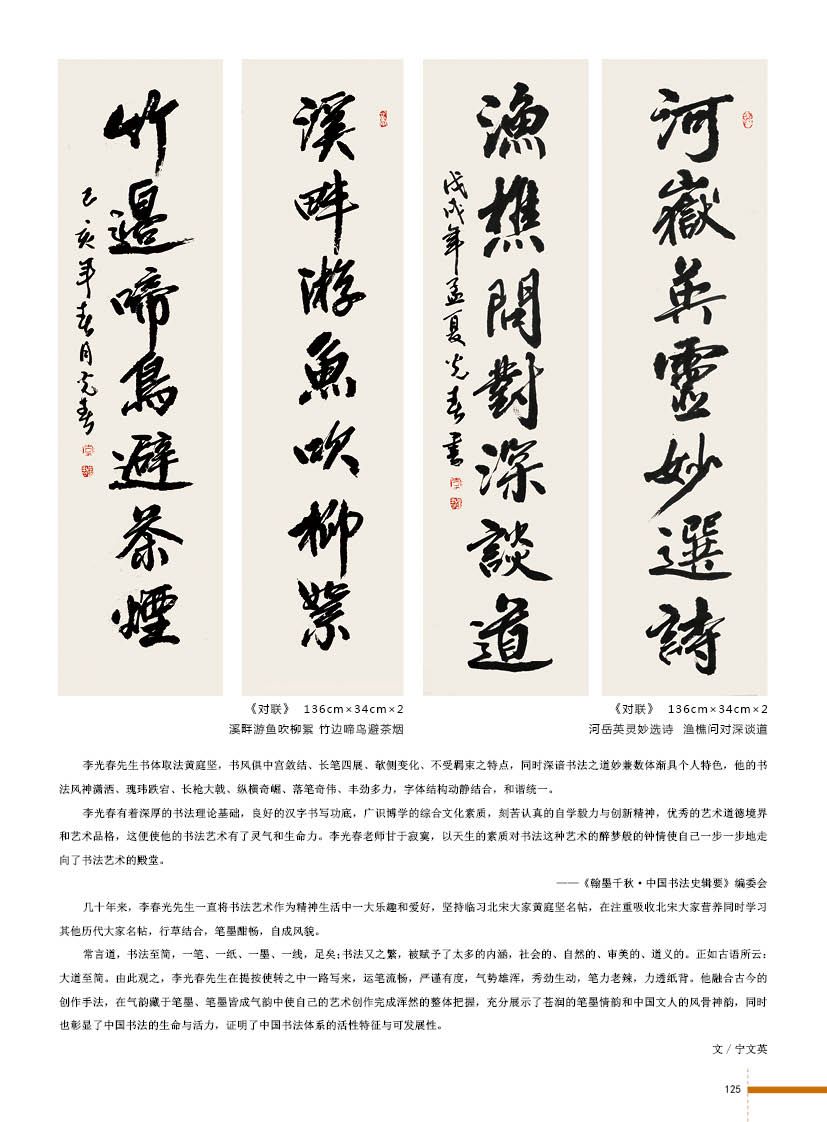 河嶽英靈妙選詩
漁樵問對深談道
戊戌年孟夏光春書
溪畔游魚吹柳絮
竹邊啼鳥避茶煙
己亥年春月光春
《对联》 136cm×34cm×2
溪畔游鱼吹柳絮 竹边啼鸟避茶烟
《对联》 136cm×34cm×2
河岳英灵妙选诗 渔樵问对深谈道
李光春先生书体取法黄庭坚，书风俱中宫敛结、长笔四展、欹侧变化、不受羁束之特点，同时深谙书法之道妙兼数体渐具个人特色，他的书
法风神潇洒、瑰玮跌宕、长枪大戟、纵横奇崛、落笔奇伟、丰劲多力，字体结构动静结合，和谐统一。
李光春有着深厚的书法理论基础，良好的汉字书写功底，广识博学的综合文化素质，刻苦认真的自学毅力与创新精神，优秀的艺术道德境界
和艺术品格，这便使他的书法艺术有了灵气和生命力。李光春老师甘于寂寞，以天生的素质对书法这种艺术的醉梦般的钟情使自己一步一步地走
向了书法艺术的殿堂。
——《翰墨千秋·中国书法史辑要》编委会
几十年来，李春光先生一直将书法艺术作为精神生活中一大乐趣和爱好，坚持临习北宋大家黄庭坚名帖，在注重吸收北宋大家营养同时学习
其他历代大家名帖，行草结合，笔墨酣畅，自成风貌。
常言道，书法至简，一笔、一纸、一墨、一线，足矣；书法又之繁，被赋予了太多的内涵，社会的、自然的、审美的、道义的。正如古语所云：
大道至简。由此观之，李光春先生在提按使转之中一路写来，运笔流畅，严谨有度，气势雄浑，秀劲生动，笔力老辣，力透纸背。他融合古今的
创作手法，在气韵藏于笔墨、笔墨皆成气韵中使自己的艺术创作完成浑然的整体把握，充分展示了苍润的笔墨情韵和中国文人的风骨神韵，同时
也彰显了中国书法的生命与活力，证明了中国书法体系的活性特征与可发展性。
文 / 宁文英
125